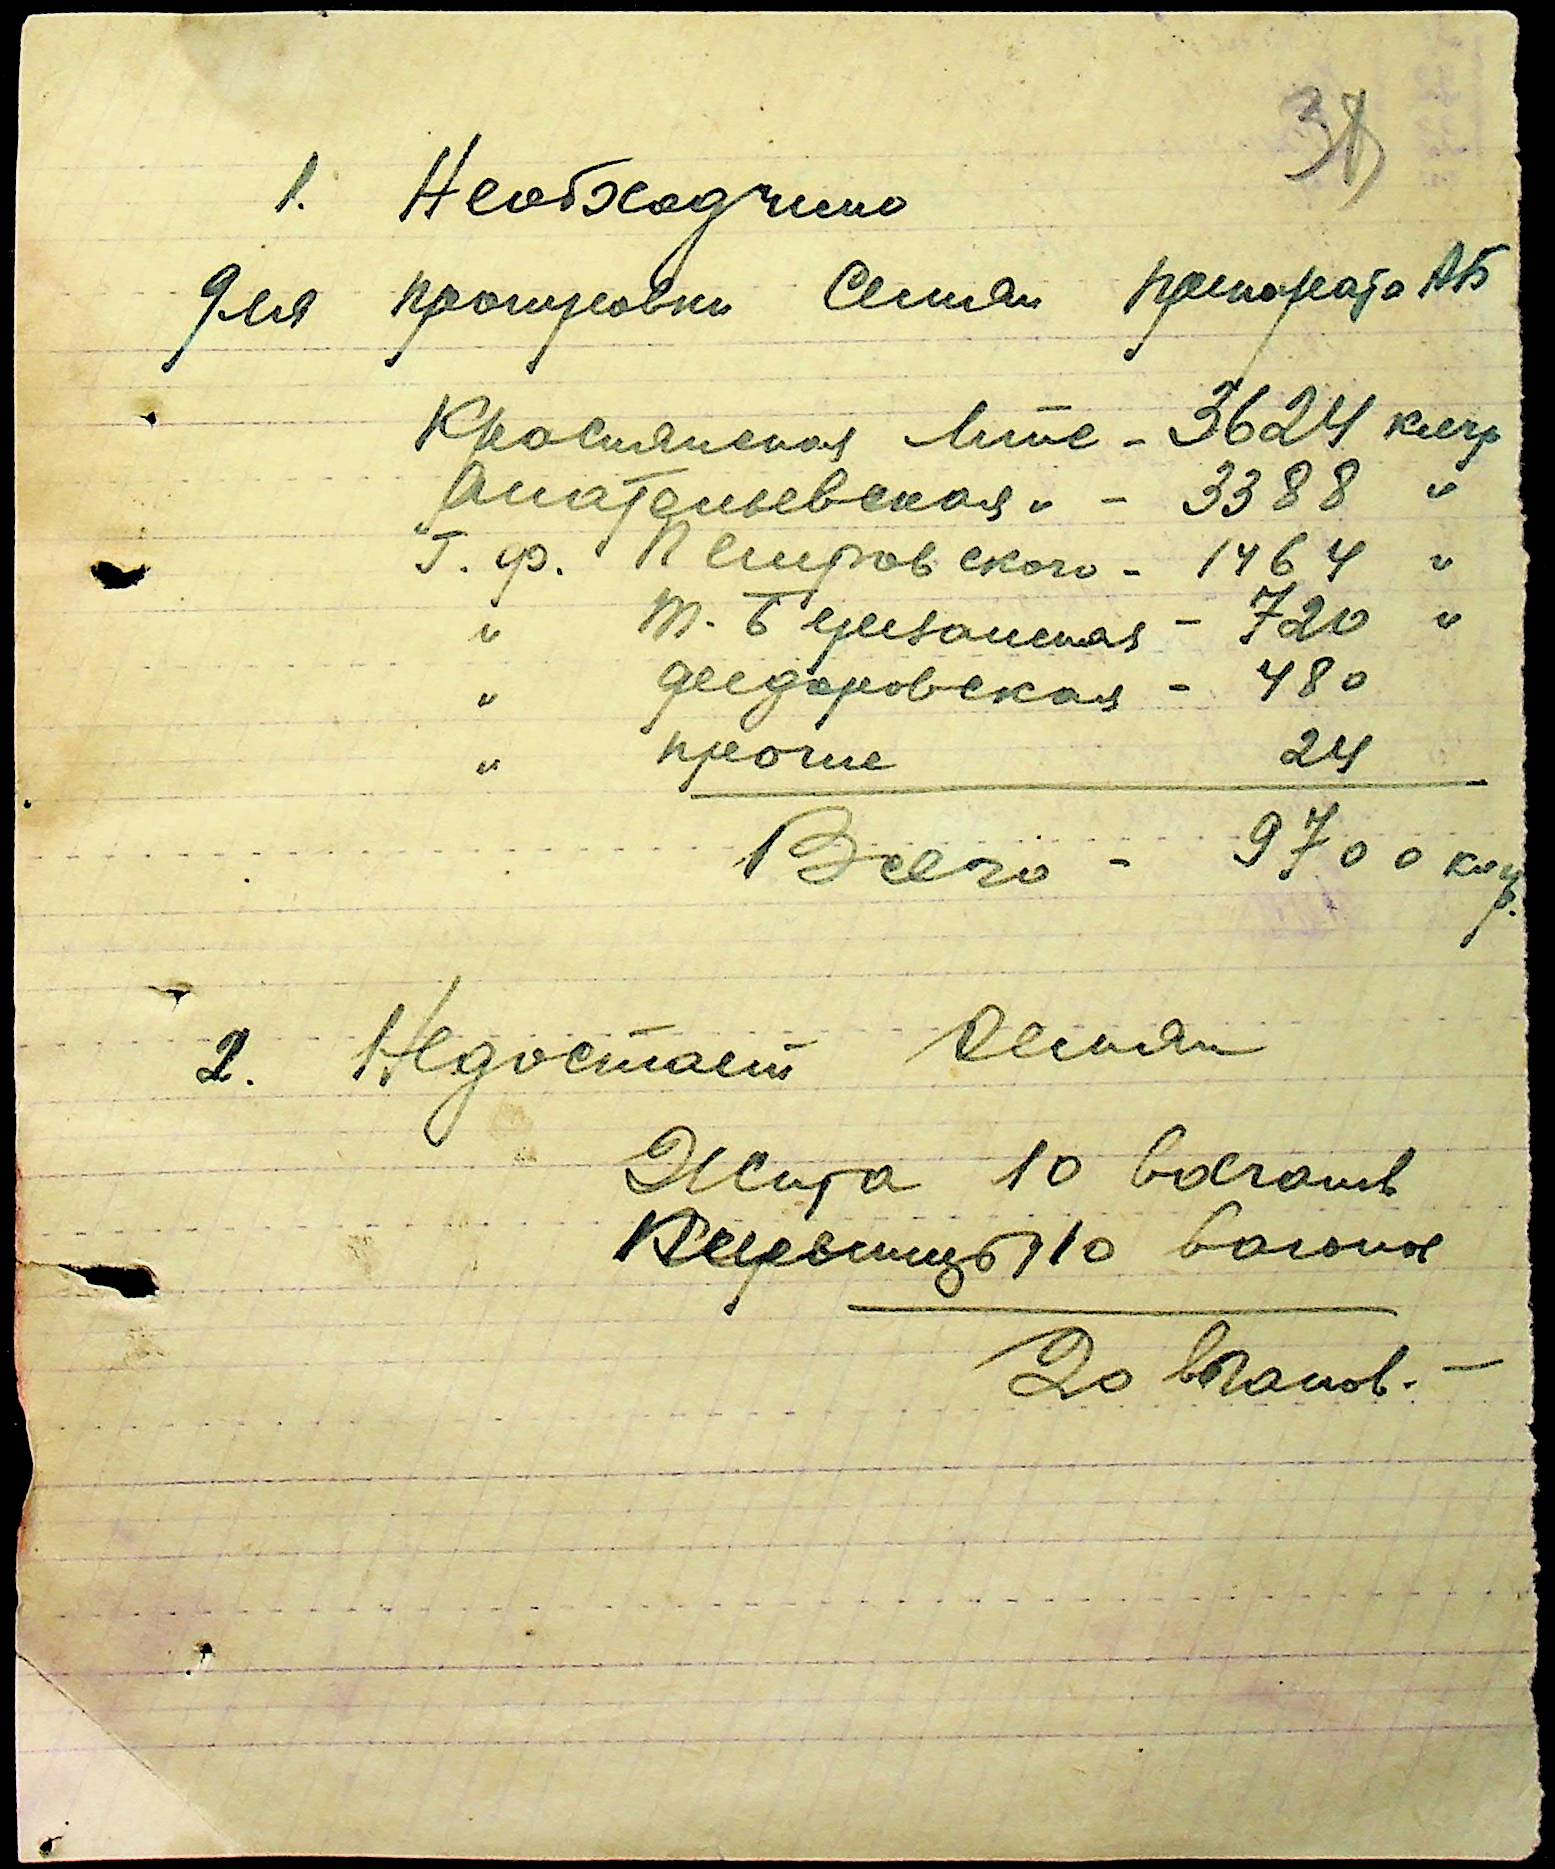 1. Необходимо
Для протровки Семян препарата АБ
Краснянская Мтс - 3624 килгр
Анатольевская " - 3388 "
Г. ф. Петровского - 1464 "
" М. Березанская - 720 "
" Федоровская - 480
" прочие 24
Всего - 9700 клгр.
2. Недостает Семян
Жита 10 вагонов
10 вагонов
20 вагонов. -